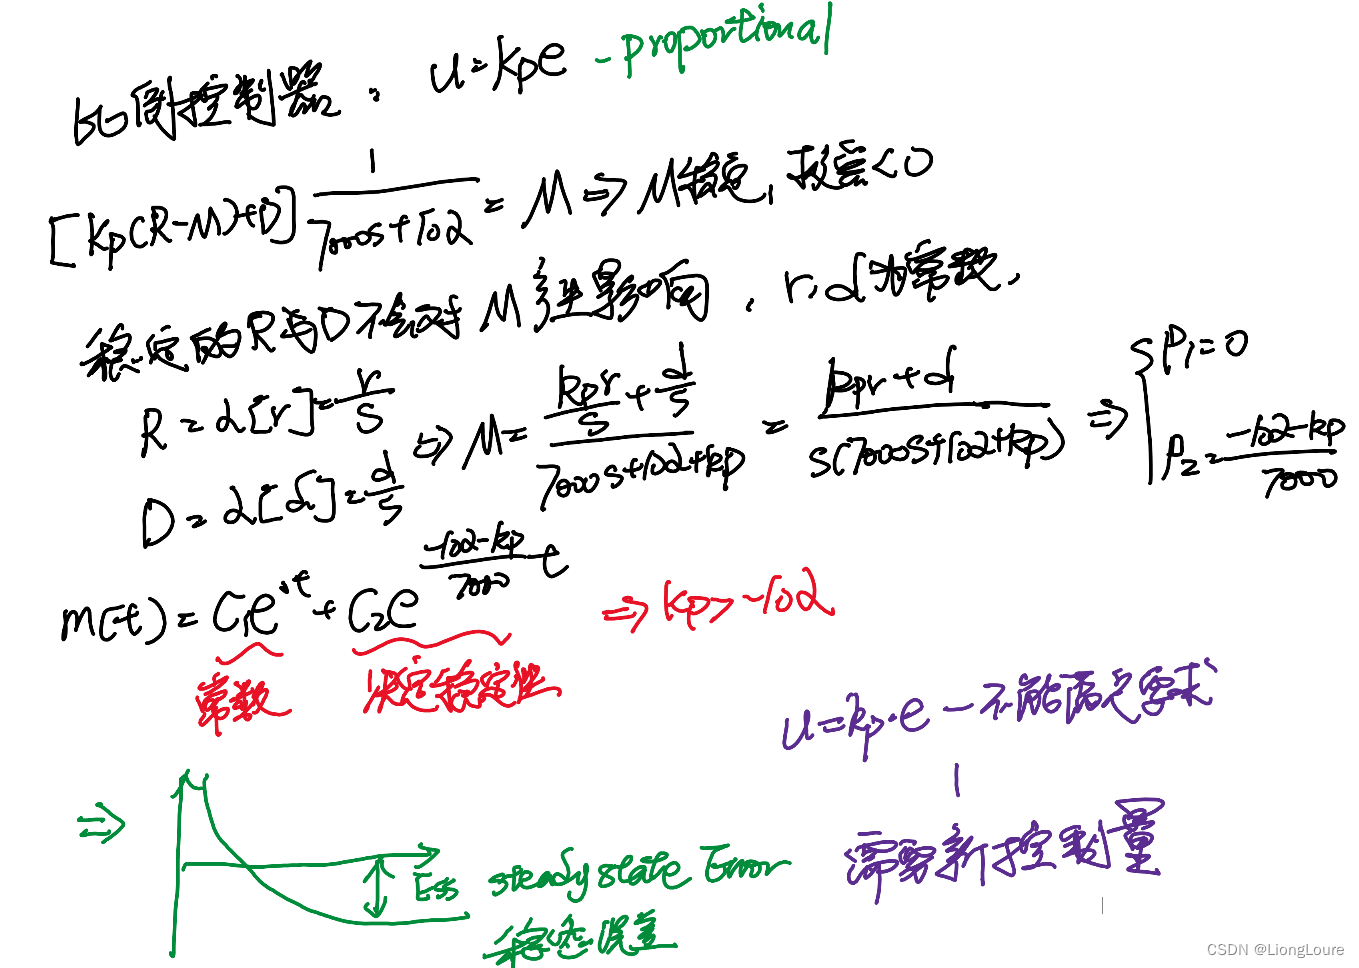 比例控制器: u=kpe -proportional
[kp(R-M)+D] 1/(7000s+10α) = M ⇒ M稳定, 极点<0
稳定的R与D不会对M产生影响, r, d为常数,
R=L[r]=r/s
D=L[d]=d/s
⇒ M= (kpr/s + d/s)/(7000s+10α+kp) = (kpr+d)/(s(7000s+10α+kp)) ⇒ { P1=0
P2=(-10α-kp)/7000
m(t)=C1e^0t + C2e^((-10α-kp)/7000 t) ⇒ kp>-10α
常数 决定稳定性
u=kp·e -不能满足要求
需要新控制量
⇒ Ess steady state Error
稳态误差
CSDN @LiongLoure